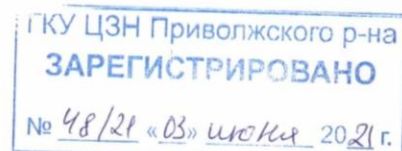 ГКУ ЦЗН Приволжского р-на
ЗАРЕГИСТРИРОВАНО
№ 48/21 «03» июня 2021 г.